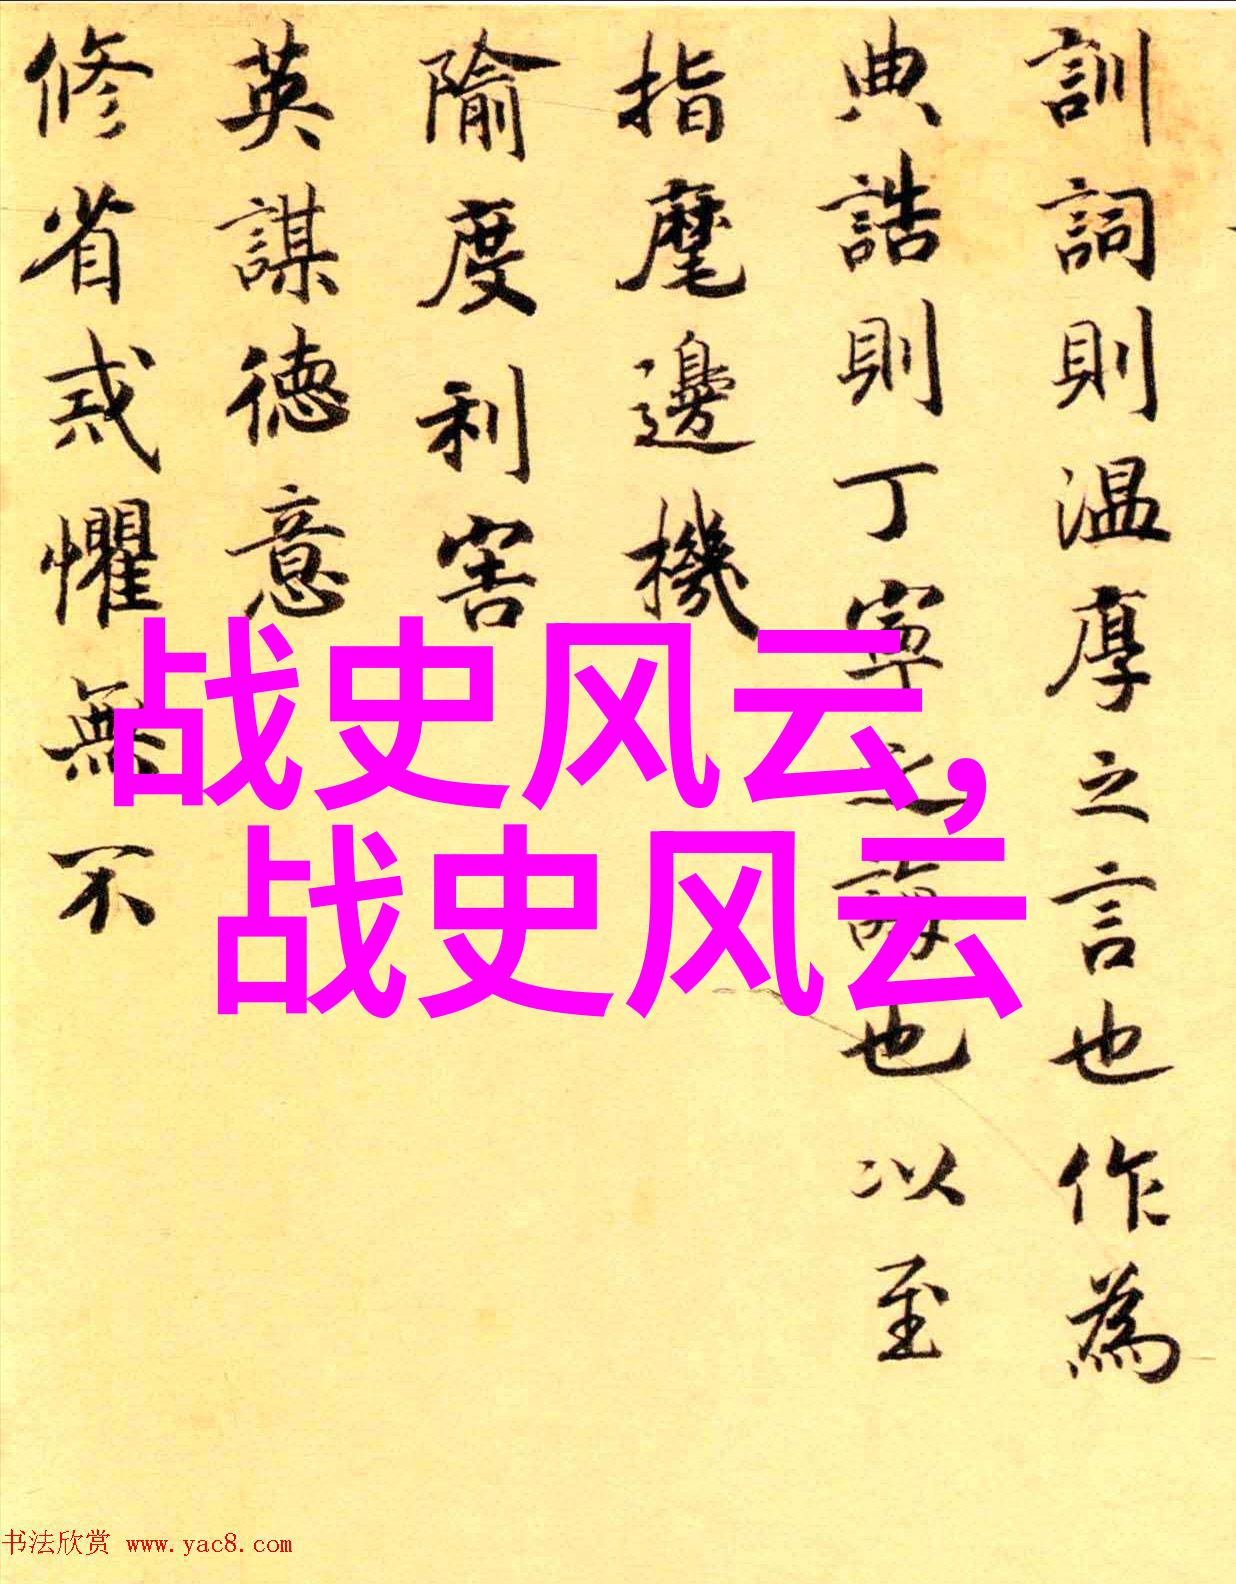 訓詞則温厚之言也作為
典誥則丁寧之誨也以至
指麾邊機
隃度利害
英謀徳意
修省戒懼無不
战史风云,
战史风云
书法欣赏 www.yac8.com